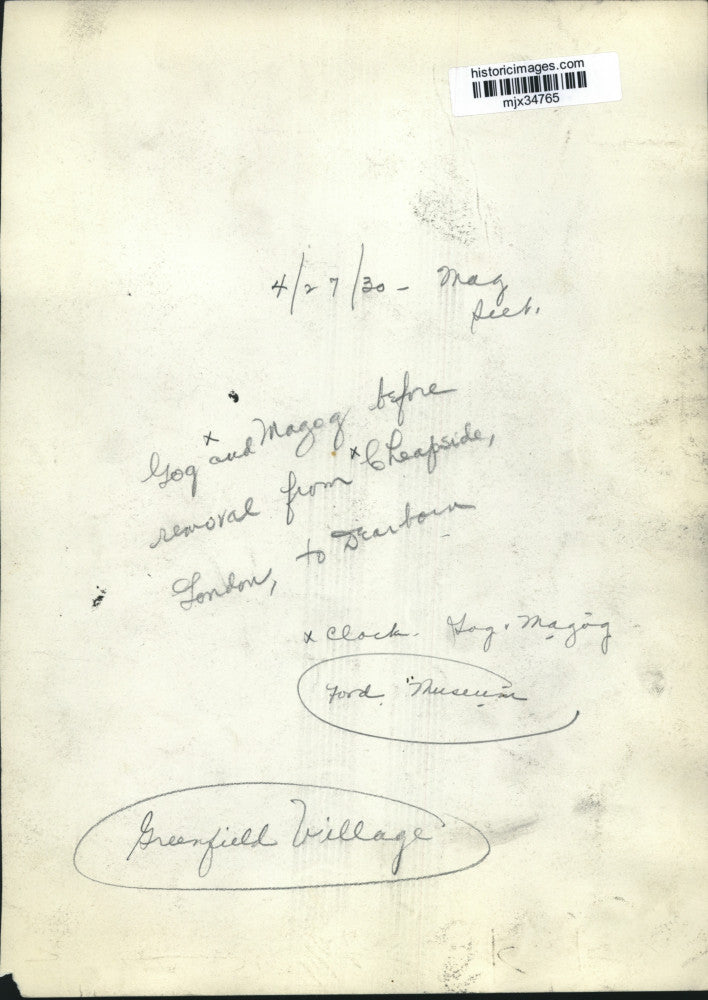 historicimages.com
mjx34765
4/27/30 - Mag
Sect.
x
Gog and Magog before
removal from x Cheapside,
London, to Dearborn
x Clock. Gog & Magog
Ford "Museum
Greenfield Village